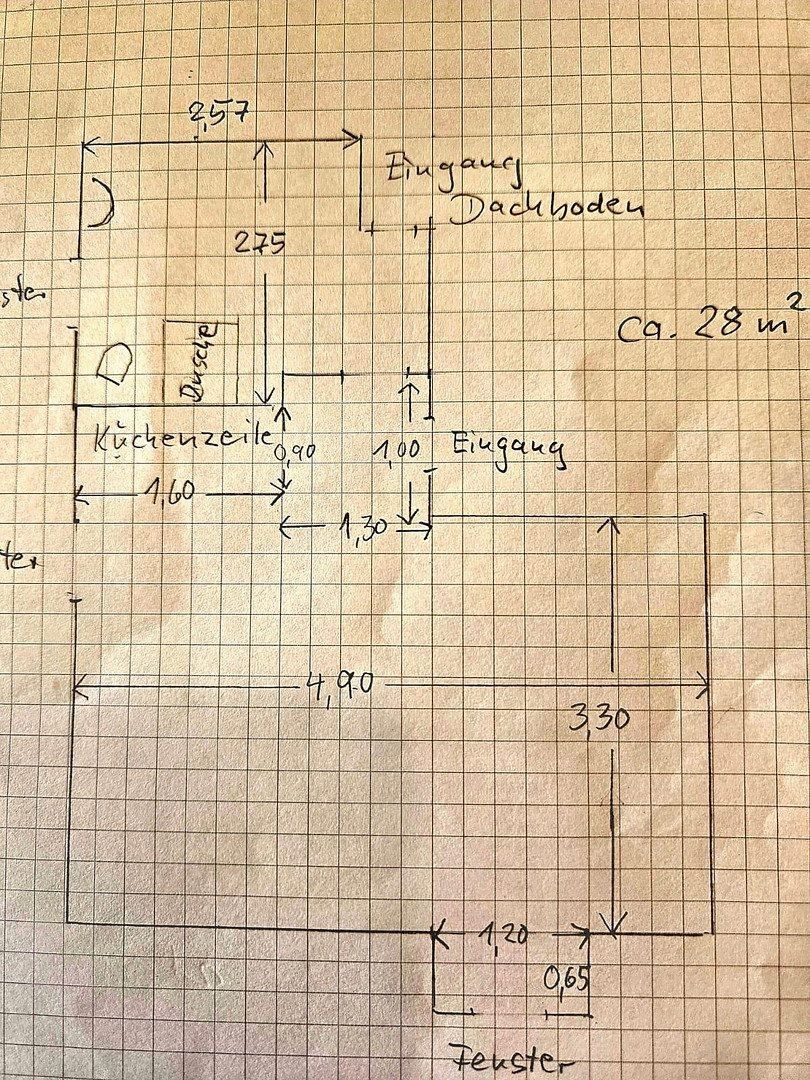 2,57
Eingang
Dachboden
275
ster
ca. 28 m²
Dusche
Küchenzeile
0,90
1,00
Eingang
1,60
1,30
ter
4,90
3,30
1,20
0,65
Fenster